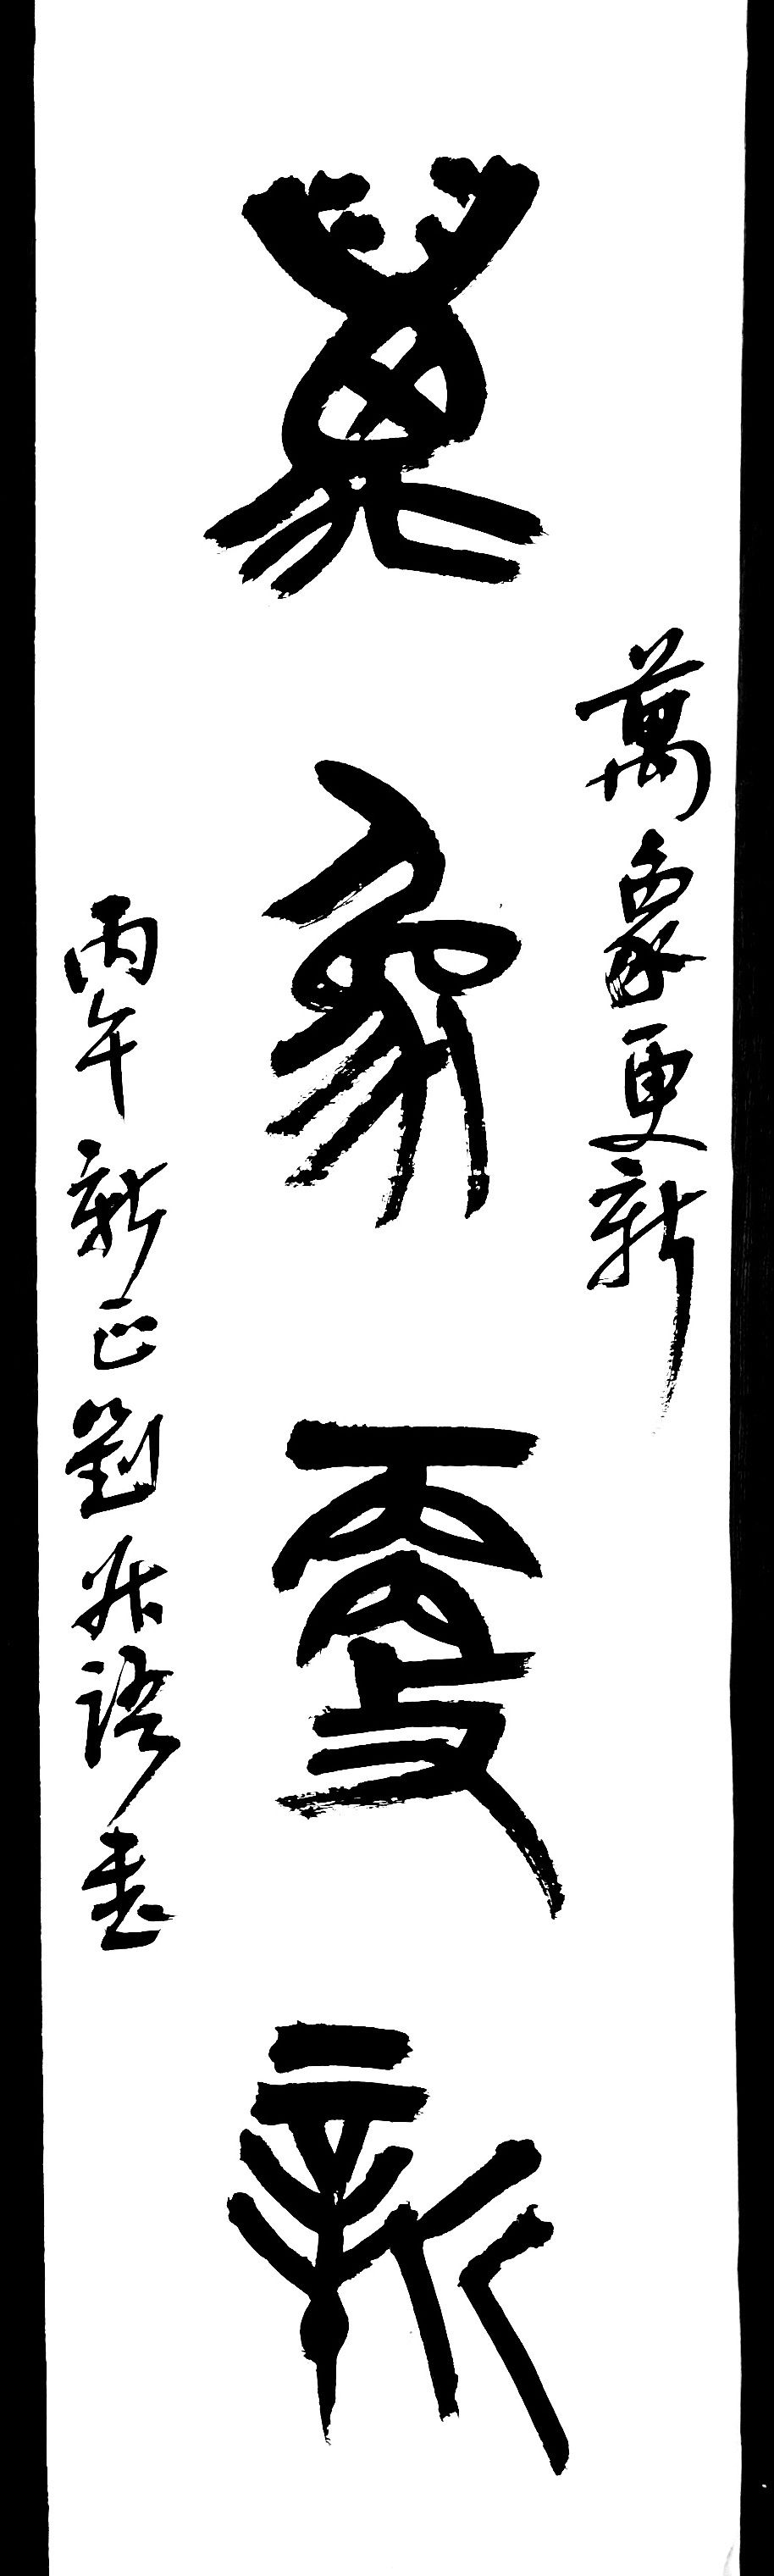 萬象更新
萬象更新
丙午新正劉作語書